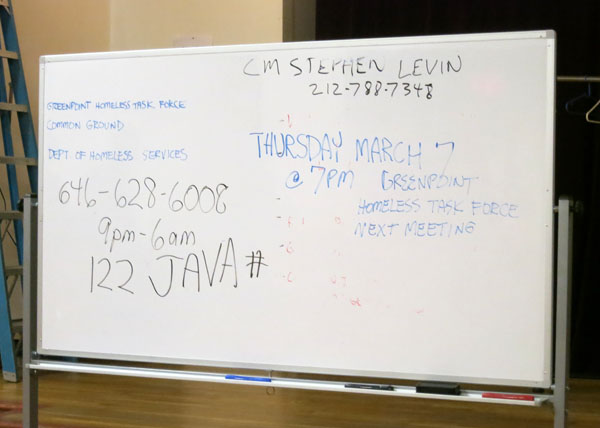 CM STEPHEN LEVIN
212-788-7348
GREENPOINT HOMELESS TASK FORCE
COMMON GROUND
DEPT. OF HOMELESS SERVICES
646-628-6008
9pm-6am
122 JAVA #
THURSDAY MARCH 7
@ 7PM GREENPOINT
HOMELESS TASK FORCE
NEXT MEETING